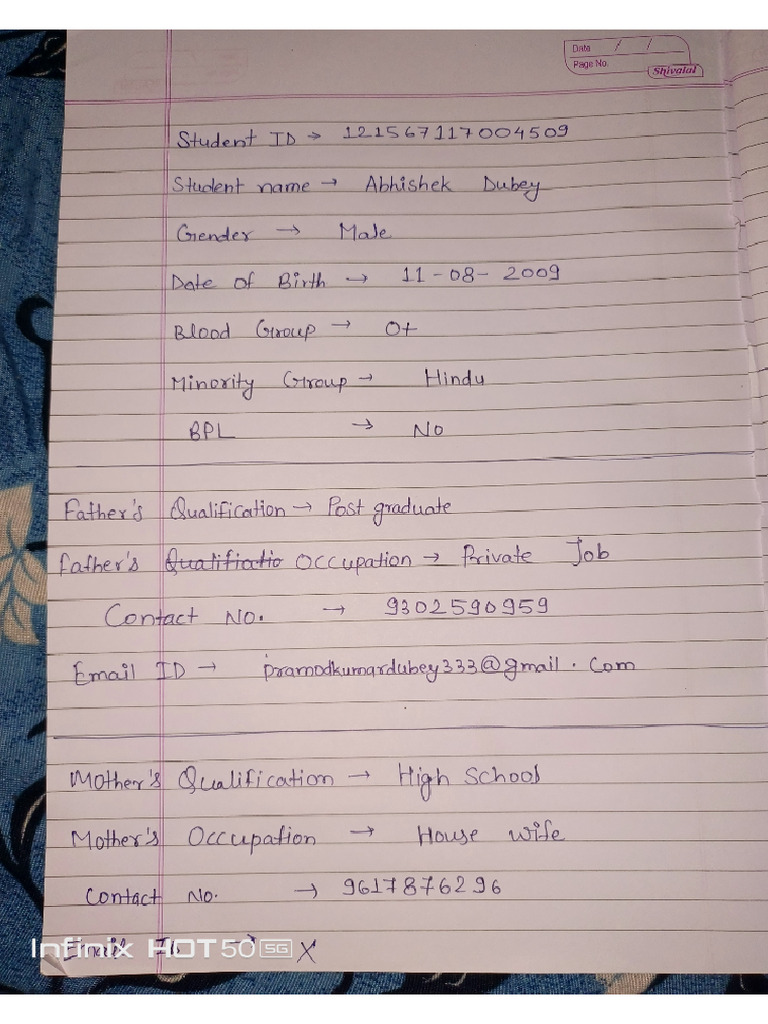 Date / /
Page No.
Shivalal
Student ID → 121567117004509
Student name → Abhishek Dubey
Gender → Male
Date of Birth → 11-08-2009
Blood Group → O+
Minority Group → Hindu
BPL → No
Father's Qualification → Post graduate
Father's Qualificatio Occupation → Private Job
Contact No. → 9302590959
Email ID → pramodkumardubey333@gmail.com
Mother's Qualification → High School
Mother's Occupation → House wife
Contact No. → 9617876296
Email ID → X
Infinix HOT 50 5G